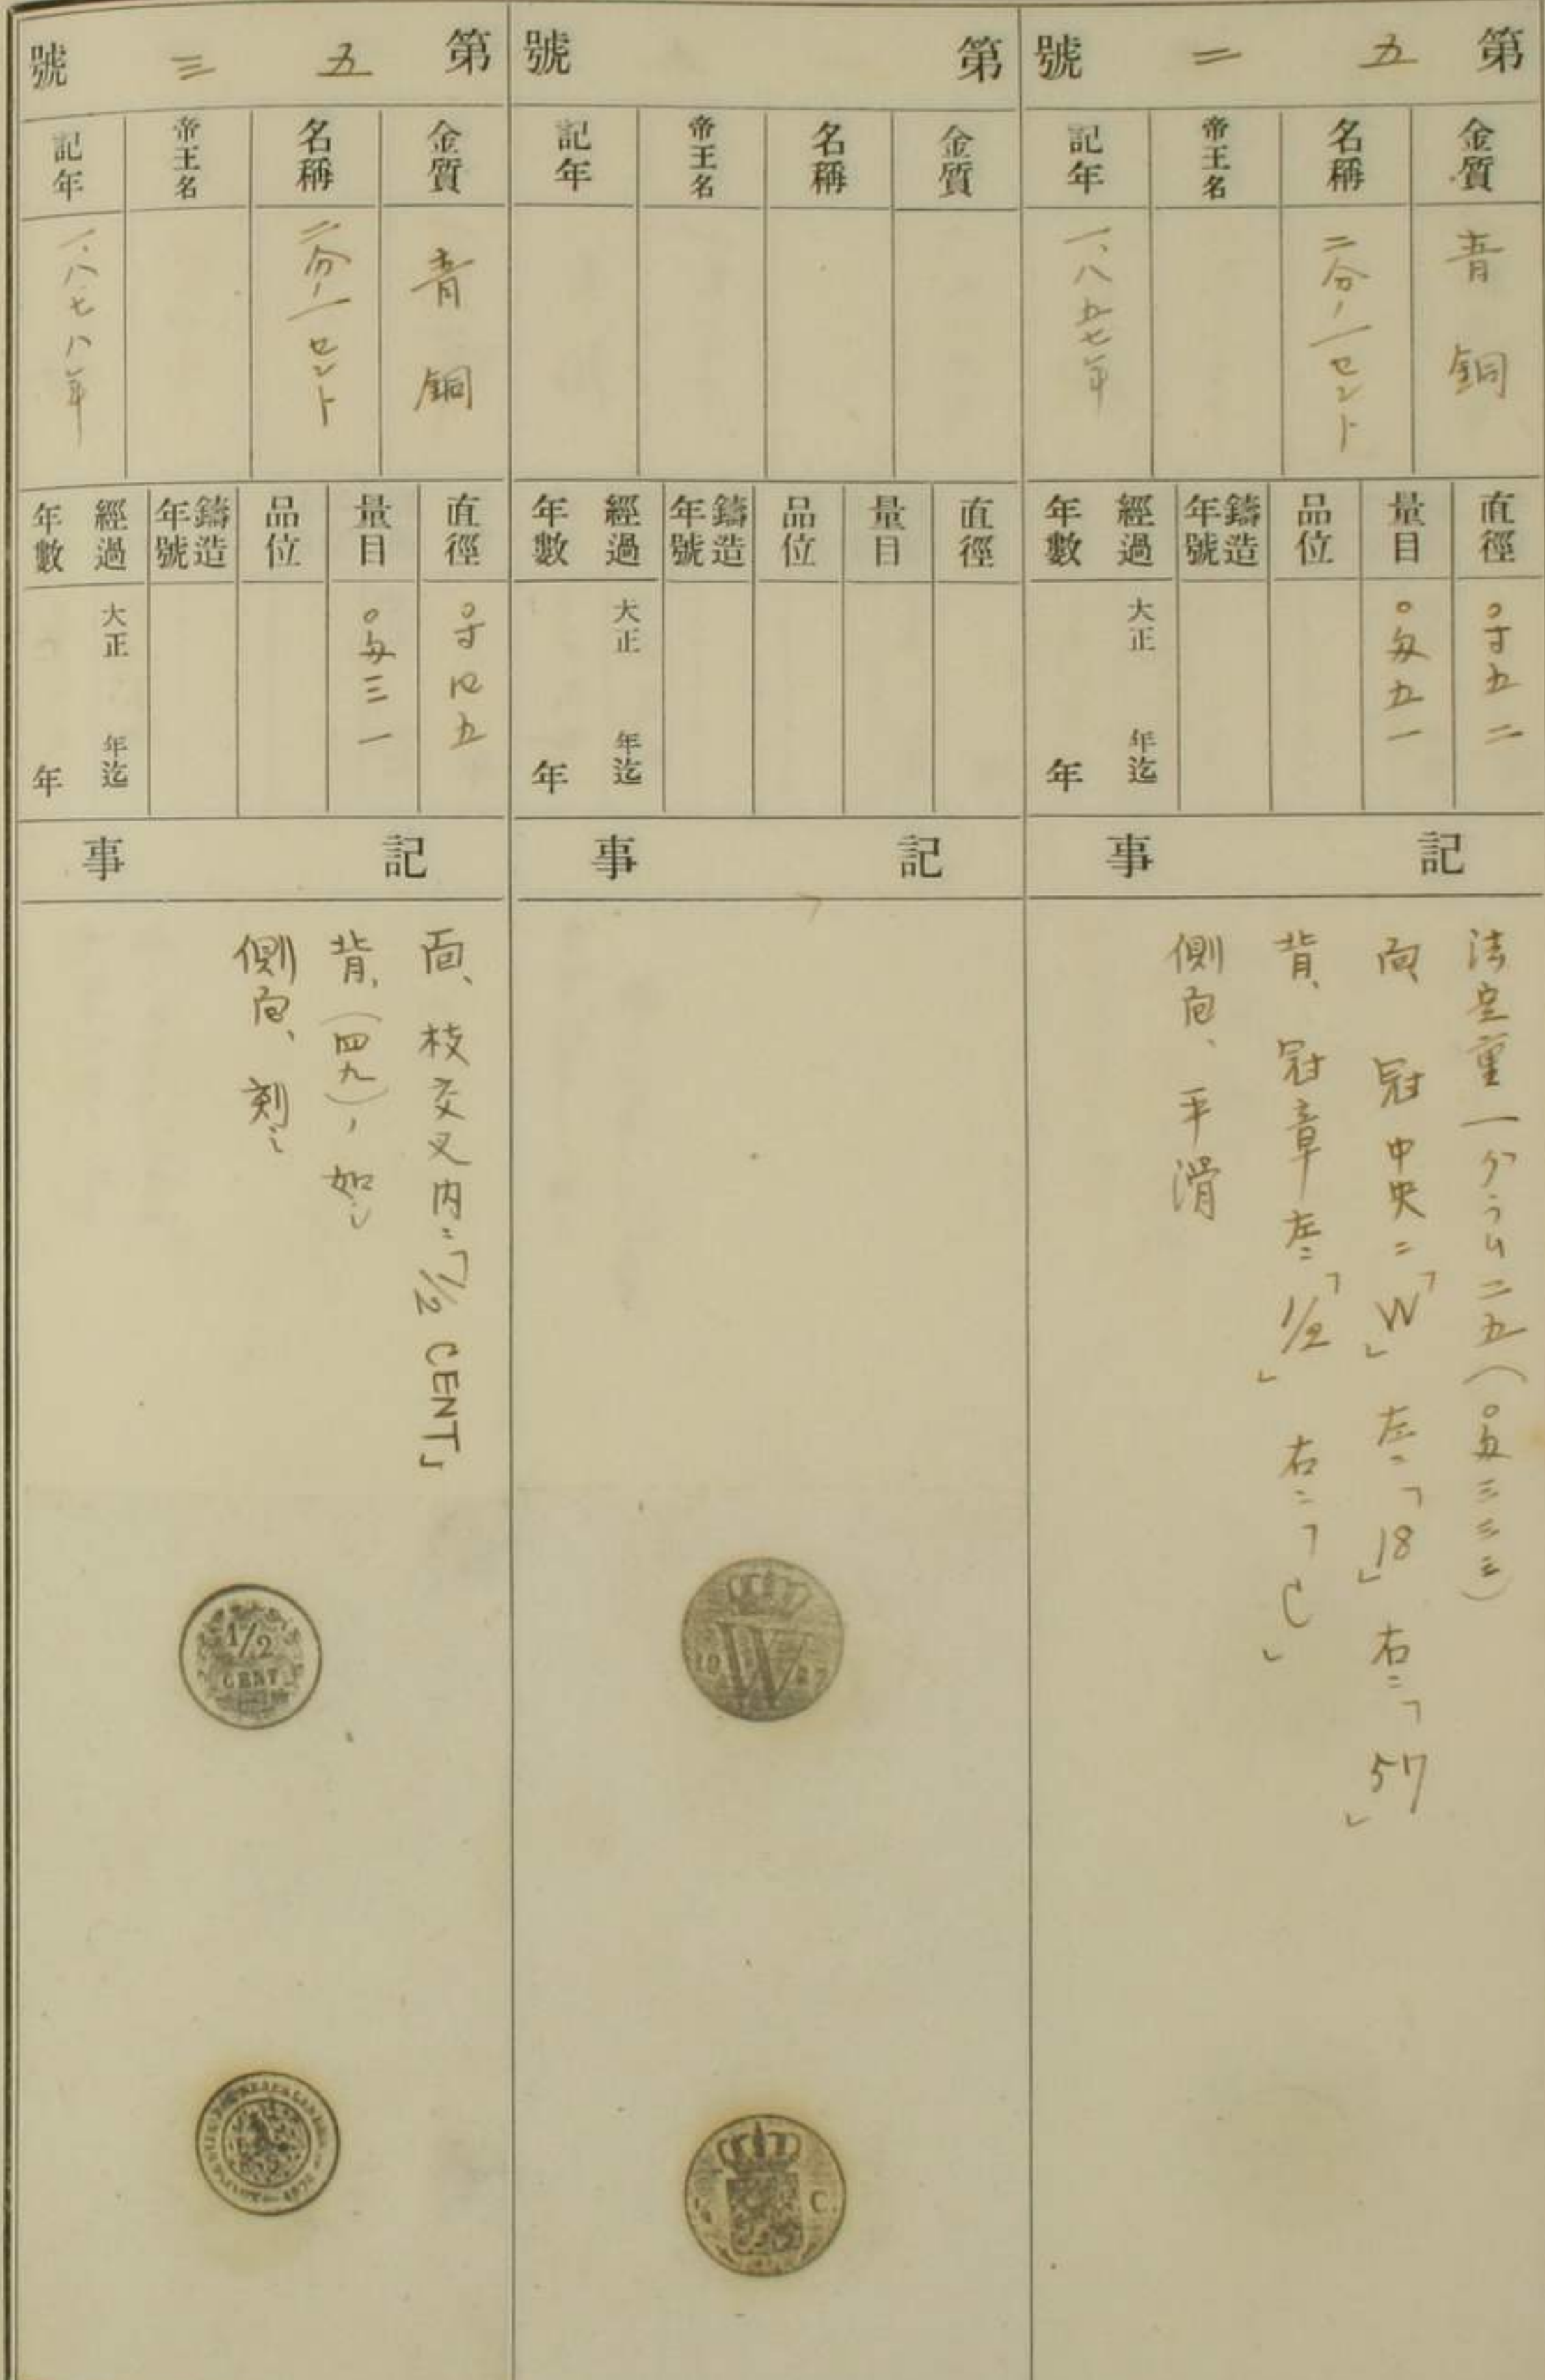 第五二號
金質
青銅
名稱
二分ノ一セント
帝王名
記年
一、八五七年
直徑
〇寸五二
量目
〇匁五一
品位
鑄造年號
經過年數
大正 年迄
年
記事
法定重一グラム二五(〇匁三三三)
面 冠中央ニ「W」左ニ「18」右ニ「57」
背、冠章左ニ「1/2」右ニ「C」
側面、平滑
第 號
金質
名稱
帝王名
記年
直徑
量目
品位
鑄造年號
經過年數
大正 年迄
年
記事
W
C
第五三號
金質
青銅
名稱
二分ノ一セント
帝王名
記年
一、八七八年
直徑
〇寸四五
量目
〇匁三一
品位
鑄造年號
經過年數
大正 年迄
年
記事
面、枝交叉内ニ「1/2 CENT」
背、(四九)ノ如シ
側面、刻ミ
1/2
CENT